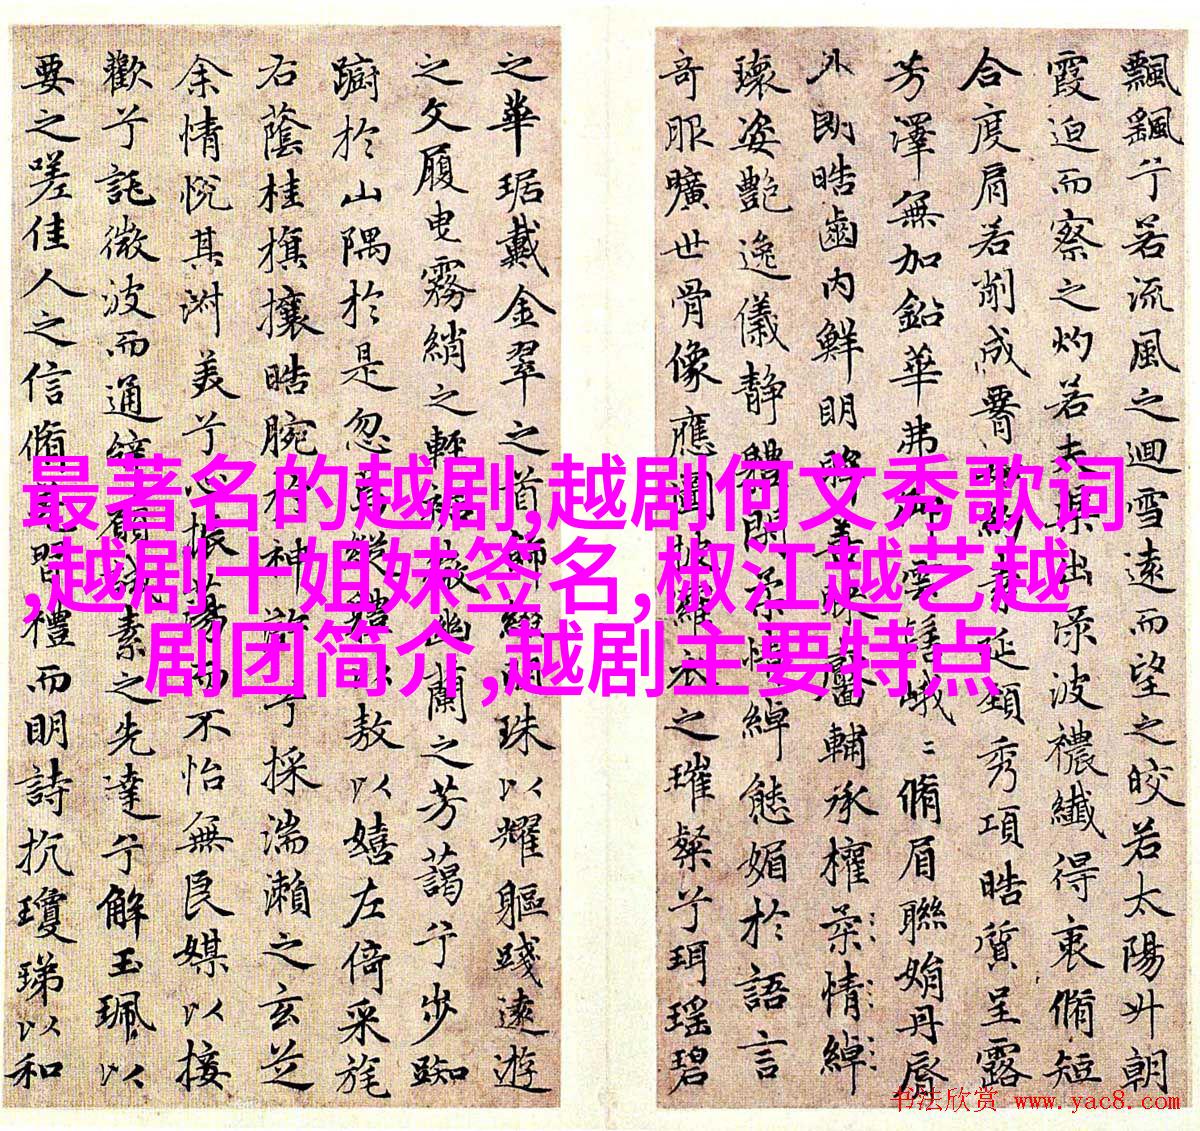 飄飖兮若流風之迴雪遠而望之皎若太陽升朝
霞迫而察之灼若夫渠出淥波襛纖得衷脩短
合度肩若削成署約素延頸秀項皓質呈露
芳澤無加鉛華弗御雲髻峨〻脩眉聯娟丹脣
外朗皓齒內鮮明眸善睞靨輔承權柔情綽
瓌姿艷逸儀靜體閑柔情綽態媚於語言
奇服曠世骨像應圖披羅衣之璀粲兮珥瑤碧
之華琚戴金翠之首飾綴明珠以耀軀踐遠遊
之文履曳霧綃之輕裾微幽蘭之芳藹兮步踟
躕於山隅於是忽焉縱體以敖以嬉左倚采旄
右蔭桂旗攘皓腕於神滸兮採湍瀨之玄芝
余情悅其淑美兮心振蕩而不怡無良媒以接
歡兮託微波而通辭願誠素之先達兮解玉珮以
要之嗟佳人之信脩羌習禮而明詩抗瓊珶以和
最著名的越剧,越剧何文秀歌词
,越剧十姐妹签名,椒江越艺越
剧团简介,越剧主要特点
书法欣赏 www.yac8.com